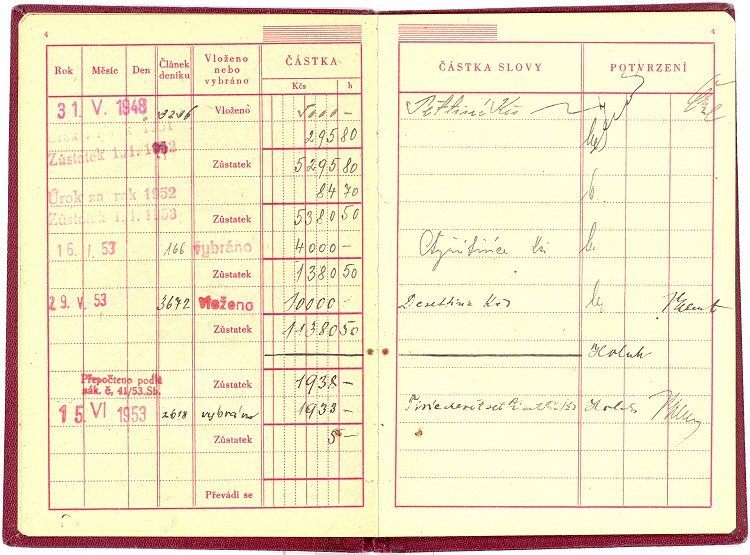 4
Rok Měsíc Den Článek deníku Vloženo nebo vybráno ČÁSTKA Kčs h
31. V. 1948 3296 Vloženo 5000 —
295 80
Zůstatek 1.1.1952 Zůstatek 5295 80
Úrok za rok 1952 84 70
Zůstatek 1.1.1953 Zůstatek 5380 50
16. I. 53 166 vybráno 4000 —
Zůstatek 1380 50
29. V. 53 3672 Vloženo 10000 —
Zůstatek 11380 50
Přepočteno podle
zák. č. 41/53 Sb. Zůstatek 1938 —
15. VI 1953 2618 vybráno 1933 —
Zůstatek 5 —
Převádí se
4
ČÁSTKA SLOVY POTVRZENÍ
Pěttisíc Kčs
Čtyřitisíce Kčs
Desettisíc Kčs
Holub
Holub